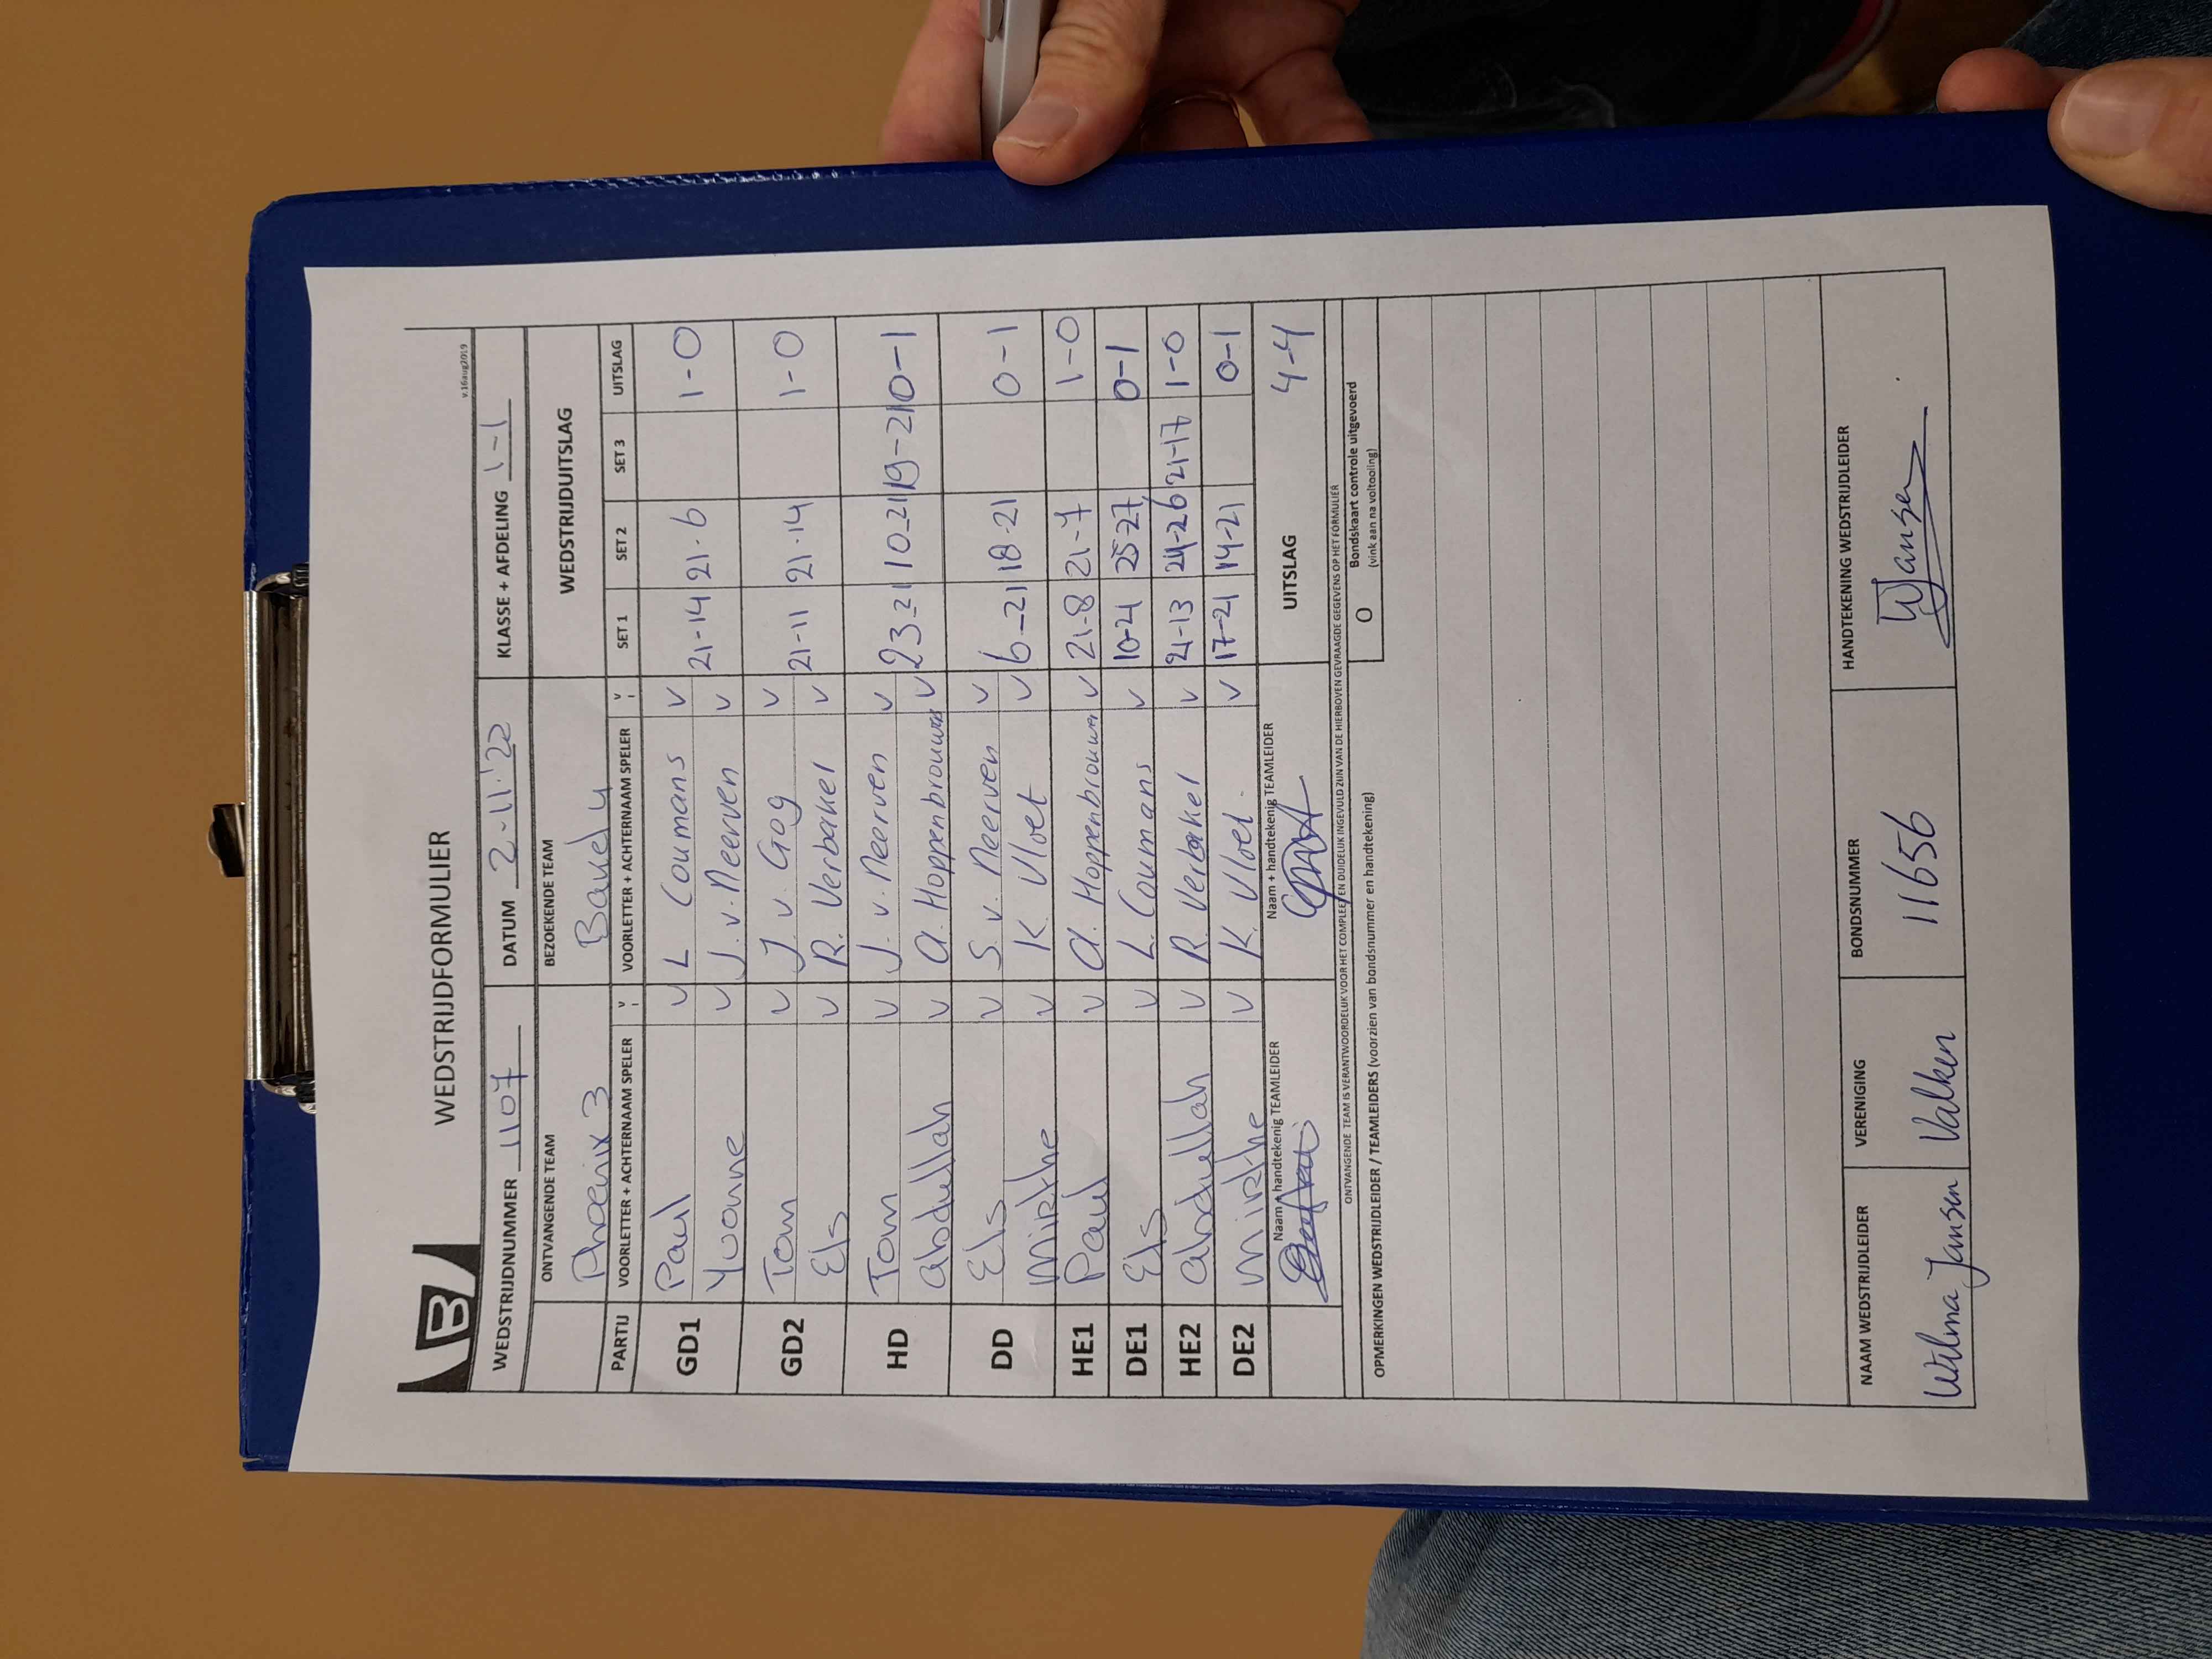 WEDSTRIJDFORMULIER
v.16aug2019
WEDSTRIJDNUMMER 1107 DATUM 2-11-'22 KLASSE + AFDELING 1-1
ONTVANGENDE TEAM BEZOEKENDE TEAM WEDSTRIJDUITSLAG
Phoenix 3 Bavel 4
PARTIJ VOORLETTER + ACHTERNAAM SPELER V VOORLETTER + ACHTERNAAM SPELER V SET 1 SET 2 SET 3 UITSLAG
GD1 Paul V L Coumans V 21-14 21-6 1-0
Yvonne V J. v. Neerven V
GD2 Tom V J. v. Gog V 21-11 21-14 1-0
Els V R. Verbakel V
HD Tom V J. v. Neerven V 23-21 10-21 19-21 0-1
Abdullah V A. Hoppenbrouwers V
DD Els V S. v. Neerven V 6-21 18-21 0-1
Mirthe V K. Vloet V
HE1 Paul V A. Hoppenbrouwers V 21-8 21-7 1-0
DE1 Els V L. Coumans V 10-21 25-27 0-1
HE2 Abdullah V R. Verbakel V 21-13 24-26 21-17 1-0
DE2 Mirthe V K. Vloet. V 17-21 14-21 0-1
Naam + handtekenig TEAMLEIDER Naam + handtekenig TEAMLEIDER UITSLAG 4-4
ONTVANGENDE TEAM IS VERANTWOORDELIJK VOOR HET COMPLEET EN DUIDELIJK INGEVULD ZIJN VAN DE HIERBOVEN GEVRAAGDE GEGEVENS OP HET FORMULIER
O Bondskaart controle uitgevoerd
(vink aan na voltooiing)
OPMERKINGEN WEDSTRIJDLEIDER / TEAMLEIDERS (voorzien van bondsnummer en handtekening)
NAAM WEDSTRIJDLEIDER VERENIGING BONDSNUMMER HANDTEKENING WEDSTRIJDLEIDER
Wilma Jansen Valken 11656 WJansen